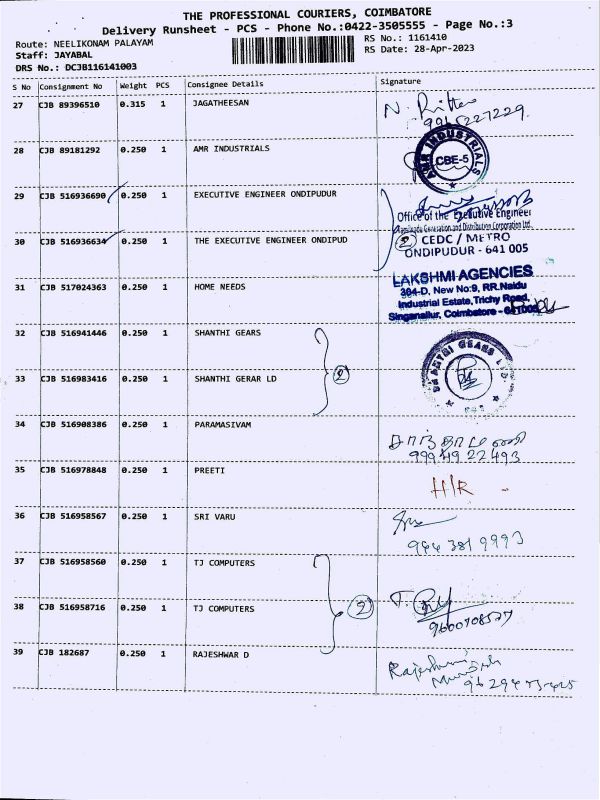 THE PROFESSIONAL COURIERS, COIMBATORE
Delivery Runsheet - PCS - Phone No.:0422-3505555 - Page No.:3
Route: NEELIKONAM PALAYAM
RS No.: 1161410
Staff: JAYABAL
RS Date: 28-Apr-2023
DRS No.: DCJB116141003
S No Consignment No Weight PCS Consignee Details Signature
27 CJB 89396510 0.315 1 JAGATHEESAN
9965227229
28 CJB 89181292 0.250 1 AMR INDUSTRIALS
AMR INDUSTRIALS
CBE-5
29 CJB 516936690 0.250 1 EXECUTIVE ENGINEER ONDIPUDUR
Office of the Executive Engineer
Tamilnadu Generation and Distribution Corporation Ltd.
30 CJB 516936634 0.250 1 THE EXECUTIVE ENGINEER ONDIPUD
2 CEDC / METRO
ONDIPUDUR - 641 005
31 CJB 517024363 0.250 1 HOME NEEDS
LAKSHMI AGENCIES
304-D, New No:9, RR.Naidu
Industrial Estate,Trichy Road,
Singanallur, Coimbatore - 641005
32 CJB 516941446 0.250 1 SHANTHI GEARS
SHANTHI GEARS LTD.
33 CJB 516983416 0.250 1 SHANTHI GERAR LD
2
34 CJB 516908386 0.250 1 PARAMASIVAM
999 49 22 493
35 CJB 516978848 0.250 1 PREETI
H/R
36 CJB 516958567 0.250 1 SRI VARU
944 381 9993
37 CJB 516958560 0.250 1 TJ COMPUTERS
38 CJB 516958716 0.250 1 TJ COMPUTERS
2
9600708527
39 CJB 182687 0.250 1 RAJESHWAR D